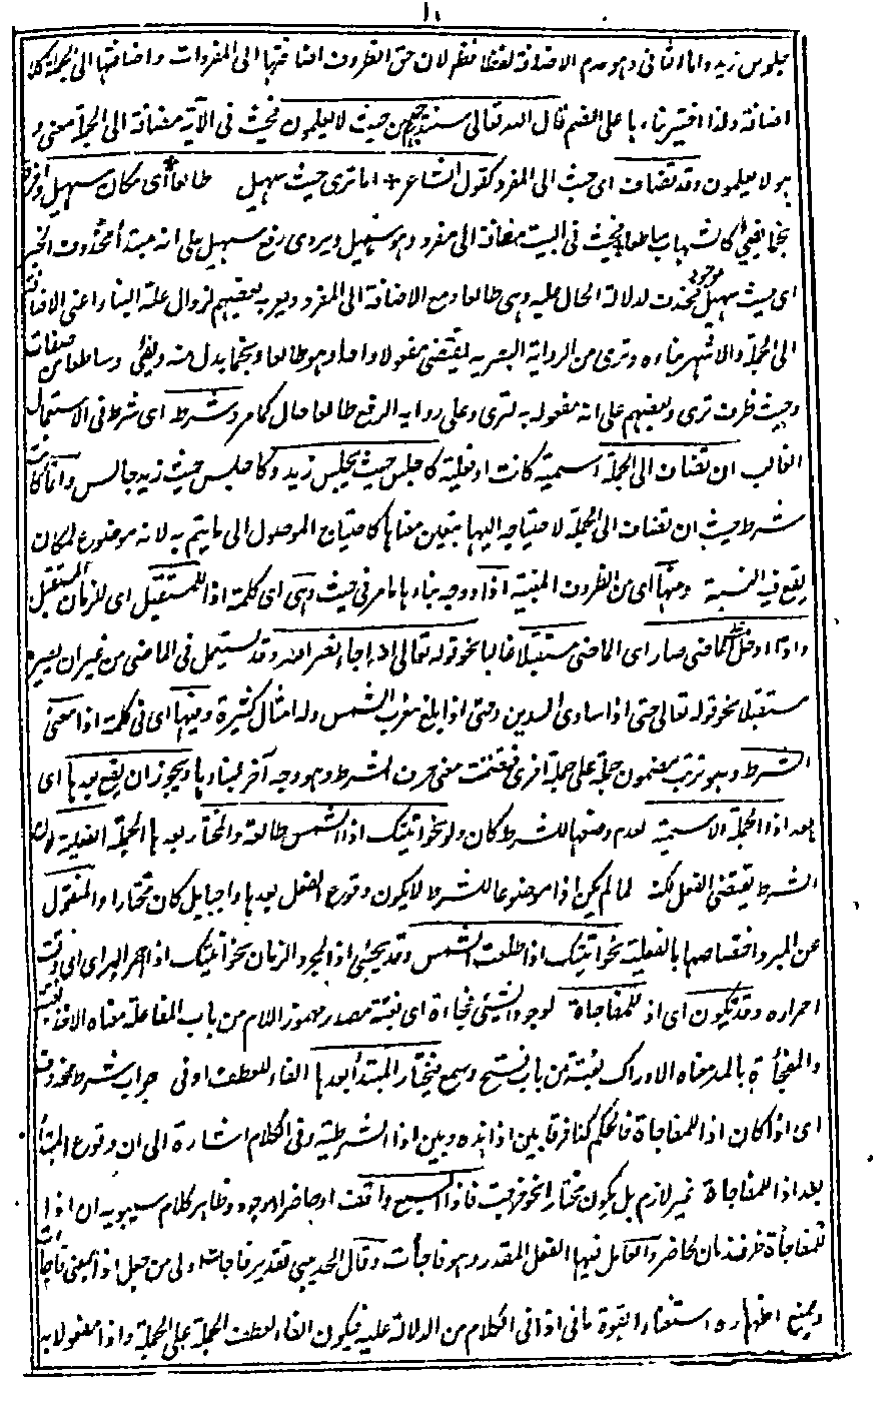 ۱۰
جلوس زيد واما الثانى وهو عدم الاضافة لفظا فظر لان حق الظروف اضافتها الى المفردات واضافتها الى الجملة كلا
اضافة ولذا اختير بناءها على الضم قال الله تعالى سنستدرجهم من حيث لا يعلمون فحيث فى الآية مضافة الى الجملة معنى و
هو لا يعلمون وقد تضاف اى حيث الى المفرد كقول الشاعر + اما ترى حيث سهيل طالعا + اى مكان سهيل وآخره
نجما يضئ كالشهاب ساطعا فحيث فى البيت مضافة الى مفرد وهو سهيل ويروى رفع سهيل على انه مبتدأ محذوف الخبر
اى حيث سهيل موجود فحذف لدلالة الحال عليه وهى طالعا ومع الاضافة الى المفرد ويعربه بعضهم لزوال علة البناء اعنى الاضافة
الى الجملة والاشهر بناءه وترى من الرواية البصرية يقتضى مفعولا واحدا وهو طالعا ونجما بدل منه ويضئ وساطعا من صفاته
وحيث ظرف ترى وبعضهم على انه مفعول به لترى وعلى رواية الرفع طالعا حال كما مر وشرطه اى شرط فى الاستعمال
الغالب ان تضاف الى الجملة اسمية كانت او فعلية كاجلس حيث يجلس زيد وكاجلس حيث زيد جالس وانما كانت
شرط حيث ان تضاف الى الجملة لاحتياجه اليها بتعين معناها كاحتياج الموصول الى ما يتم به لانه موضوع لمكان
يقع فيه النسبة ومنها اى من الظروف المبنية اذا ووجه بناءها ما مر فى حيث وهى اى كلمة اذا للمستقبل اى للزمان المستقبل
واذا دخل على الماضى صار اى الماضى مستقبلا غالبا نحو قوله تعالى اذا جاء نصر الله وقد يستعمل فى الماضى من غير ان يصير
مستقبلا نحو قوله تعالى حتى اذا ساوى بين الصدفين وحتى اذا بلغ مغرب الشمس وله امثال كثيرة وفيها اى فى كلمة اذا معنى
الشرط وهو ترتب مضمون جملة على جملة اخرى فتضمنت معنى حرف الشرط وهو وجه آخر لبناءها ويجوز ان يقع بعدها اى
بعد اذا الجملة الاسمية لعدم وضعها للشرط كان ولو نحو اتيتك اذا الشمس طالعة والمختار بعدها الجملة الفعلية لان
الشرط يقتضى الفعل لكنه لما لم يكن اذا موضوعا للشرط لا يكون وقوع الفعل بعدها واجبا بل كان مختارا والمنقول
عن المبرد اختصاصها بالفعلية نحو اتيتك اذا طلعت الشمس وقد يجئ اذا لمجرد الزمان نحو اتيتك اذا احمر البسر اى فى وقت
احمراره وقد تكون اى اذا للمفاجاة لوجود الشئ فجاءة اى بغتة مصدر مهموز اللام من باب المفاعلة معناه الاخذ بغتة
والفجأة بالمد معناه الادراك بغتة من باب فتح وسمع فيختار المبتدأ بعدها الفاء للعطف او فى جواب شرط محذوف
اى اذا كان اذا للمفاجاة فالحكم كذا فرقا بين اذا هذه وبين اذا الشرطية وفى الكلام اشارة الى ان وقوع المبتدأ
بعد اذا للمفاجاة غير لازم بل يكون مختارا نحو خرجت فاذا السبع واقف او حاضر او موجود وظاهر كلام سيبويه ان اذا
للمفاجأة ظرف زمان لحاضر والعامل فيها الفعل المقدر وهو فاجأت وقال الحديثى تقدير فاجأت اولى من جعل اذا بمعنى فاجأت
ويمنع اظهاره استغناء لقوة ما فى اذا فى الكلام من الدلالة عليه فيكون الفاء لعطف الجملة على الجملة واذا مفعولا به